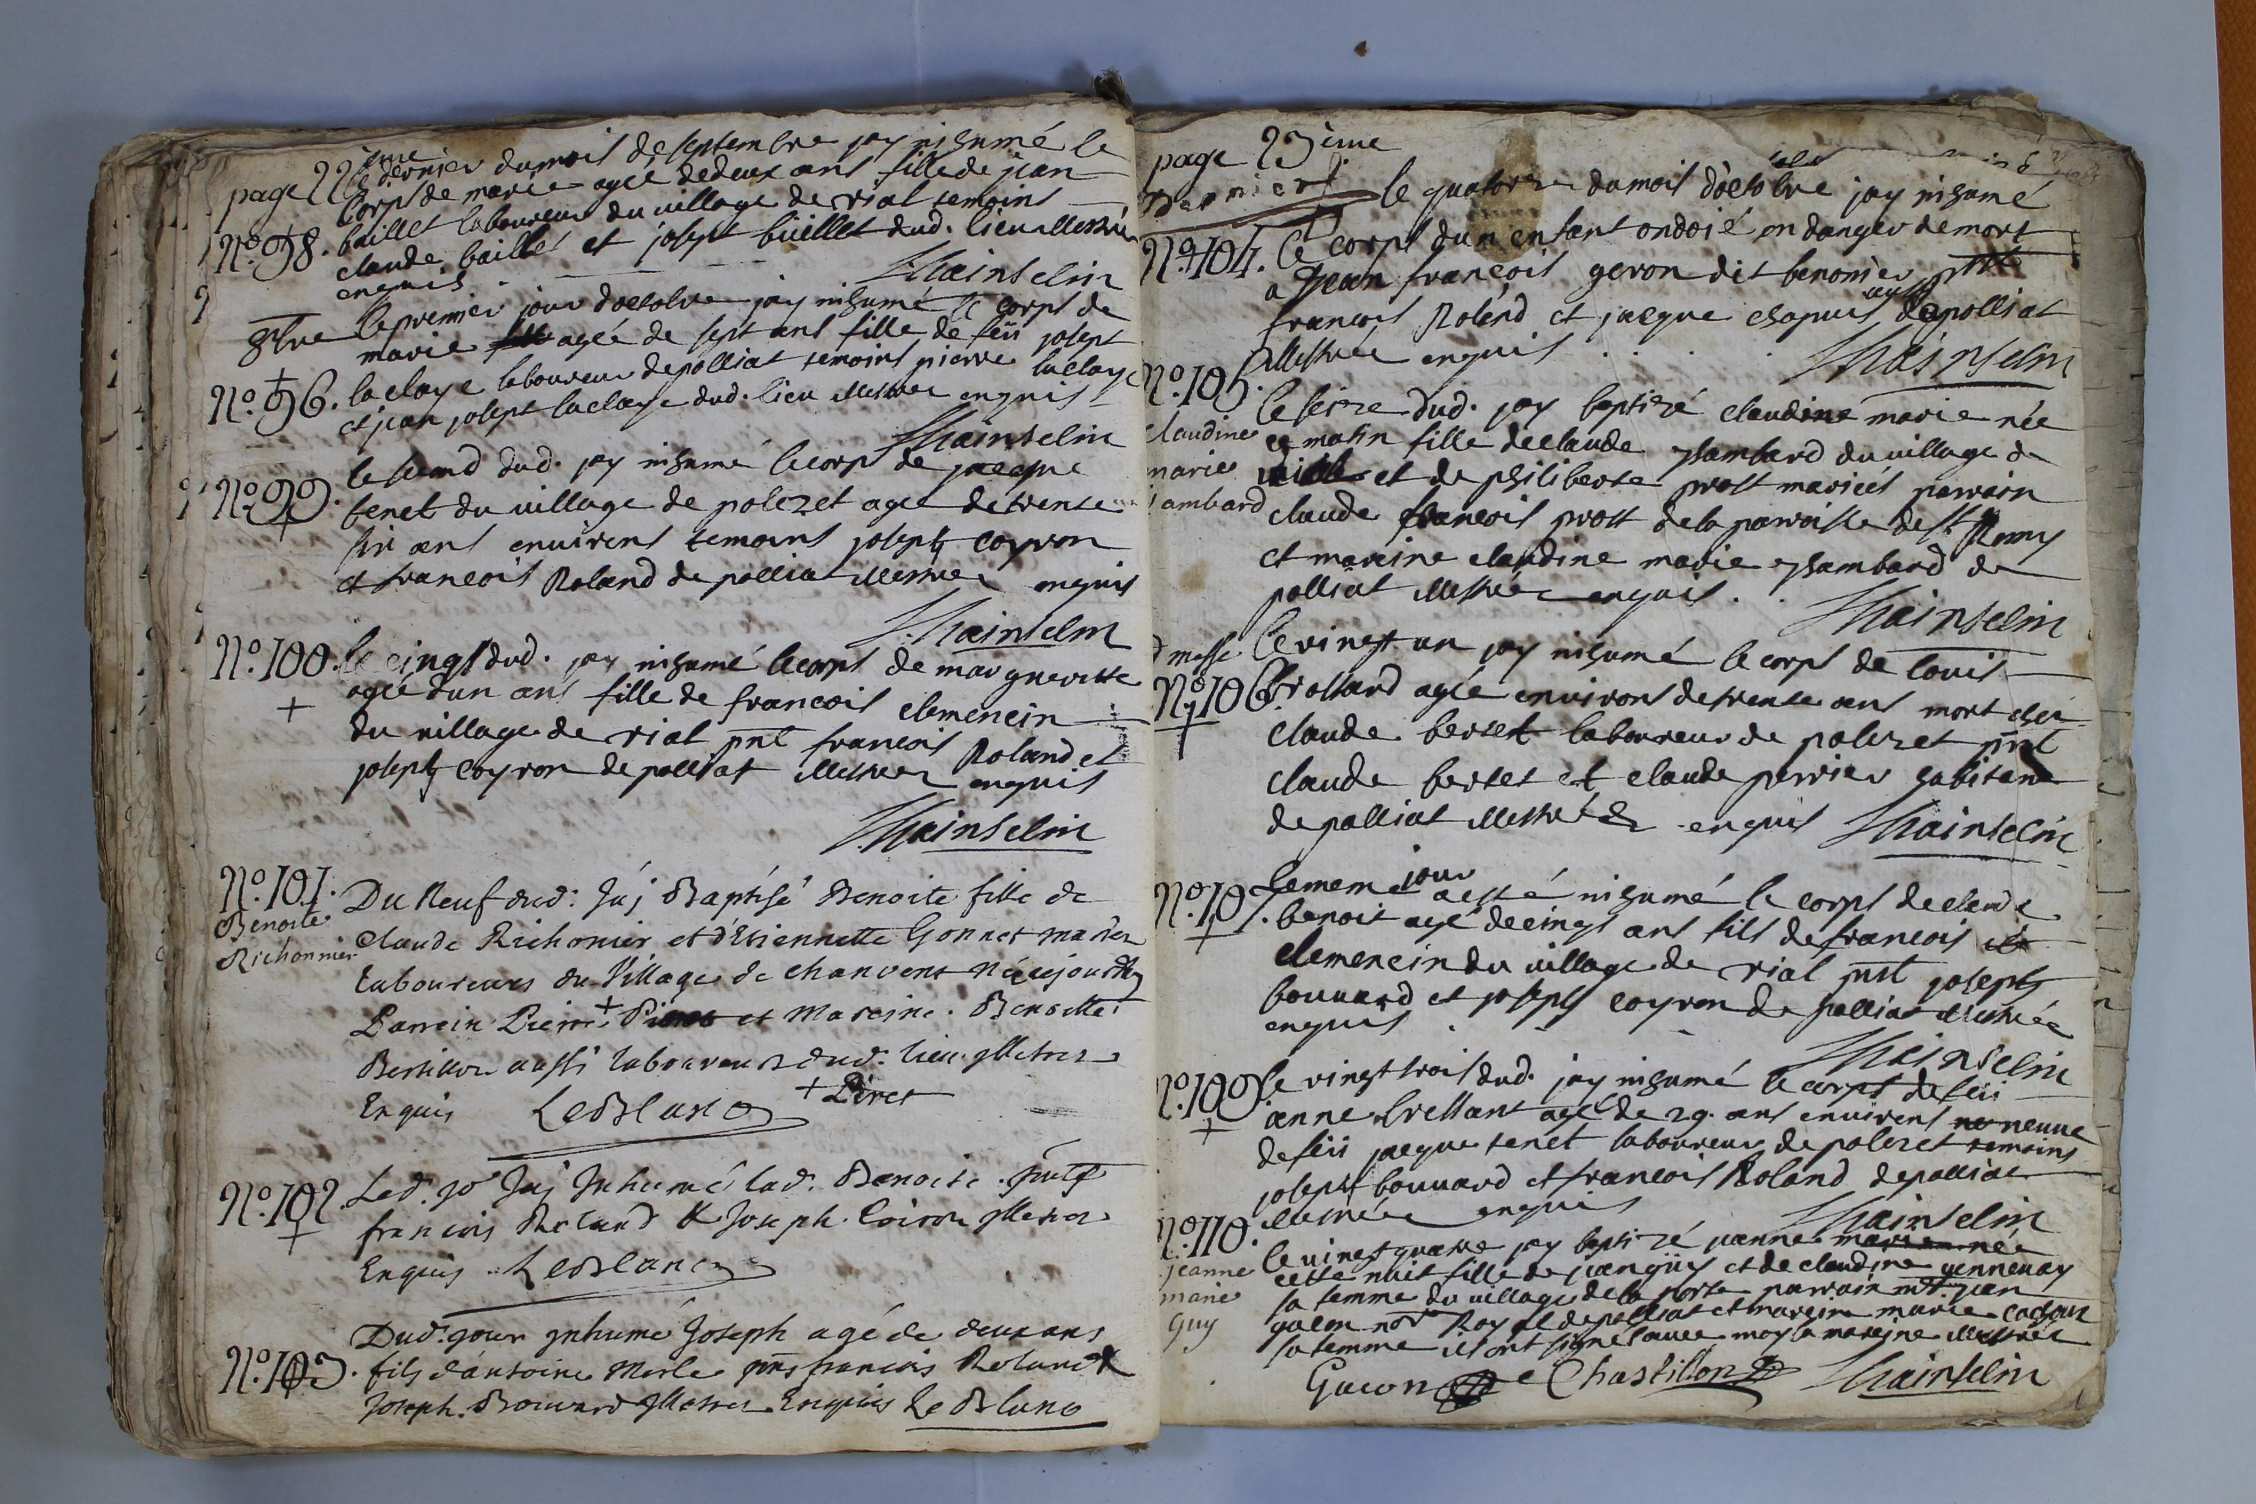 page 22ème
le dernier du mois de septembre jay inhumé le
corps de marie agée de deux ans fille de jean
N.º 98. baillet laboureur du village de rial temoins
claude baillet et joseph buillet dud. lieu illettrés
enquis Thainselin
8bre le premier jour doctobre jay inhumé le corps de
marie agée de sept ans fille de feü joseph
N.º 96. laclaye laboureur de polliat temoins pierre laclaye
et jean joseph laclaye dud. lieu illettrés enquis
Thainselin
le second dud. jay inhumé le corps de jacque
N.º 99. tenet du village de polezet agé de trente
six ans environs temoins joseph coyron
et francois Roland de polliat illettrés enquis
Thainselin
N.º 100. le cinq dud. jay inhumé le corps de margueritte
agée dun ans fille de francois clemencin
du village de rial pnt francois Roland et
joseph coyron de polliat illettrés enquis
Thainselin
N.º 101. Du Neuf dud: J'ay Baptisé Benoite fille de
Benoite
Richonnier
Claude Richonier et d'Etiennette Gonnet mariés
Laboureurs du Village de chanvent née cejourdhuy
Parrein Pierre + et Mareine Benoitte
aussi laboureurs dud: lieu illetrés
Enquis LeBlanc + Piret
N.º 102. Led. jo. J'ay Inhumé lad. Benoite. pnts
francois Roland & Joseph. Coiron illetrés
Enquis LeBlanc
Dud. jour inhumé Joseph agé de deux ans
N.º 103. fils d'antoine Merle pnts francois Roland &
Joseph. Bouvard illetrés Enquis LeBlanc
page 23ème
Dernier
le quatorze du mois d'octobre jay inhumé
N.º 104. le corps dun enfant ondoié en danger de mort
a jean francois geron dit benonier pnt
francois Rolend et jacque chapuis de polliat
illettrés enquis Thainselin
N.º 105. le seize dud. jay baptizé claudine marie née
claudine
marie
Jambard
ce matin fille de claude jambard du village de
et de philiberte prost mariés parrain
claude francois prost de la parroisse de st. Remy
et mareine claudine marie jambard de
polliat illettrés enquis. Thainselin
le vingt un jay inhumé le corps de louis
N.º 106. agée environs de trente ans mort chez
claude bertet laboureur de polezet pnt
claude bertet et claude perrier habitans
de polliat illettrés enquis Thainselin
N.º 107. le meme jour a esté inhumé le corps de claude
benoit agé de cinq ans fils de francois
clemencin du village de rial pnt joseph
bouvard et joseph coyron de polliat illettrés
enquis Thainselin
le vingt trois dud. jay inhumé le corps de feü
N.º 109. anne agé de 29. ans environs veuve
de feü jacque tenet laboureur de polezet temoins
joseph bouvard et francois Roland de polliat
illettrés enquis Thainselin
N.º 110. le vingt quatre jay baptizé jeanne marie née
jeanne
marie
Guy
cette nuit fille de jean guy et de claudine
sa femme du village de la porte parrain jean
gacon Royal de polliat et mareine marie
sa femme ils ont signé avec moy la mareine illettrée
Gacon Chastillon Thainselin